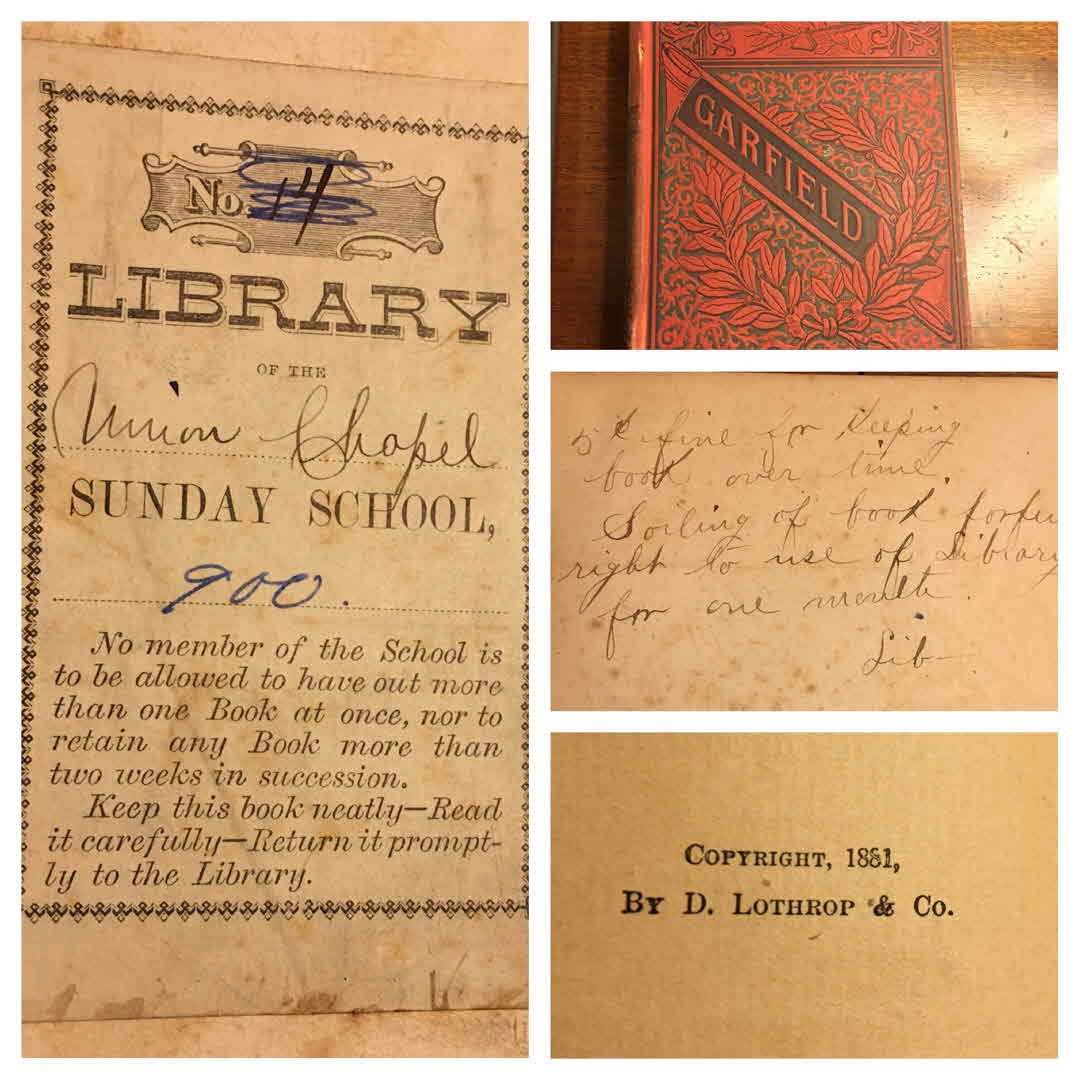 No. 14
LIBRARY
OF THE
Union Chapel
SUNDAY SCHOOL,
900.
No member of the School is
to be allowed to have out more
than one Book at once, nor to
retain any Book more than
two weeks in succession.
Keep this book neatly—Read
it carefully—Return it prompt-
ly to the Library.
GARFIELD
5 ¢ fine for Keeping
book over time.
Soiling of book forfei
right to use of Library
for one month.
Lib—
COPYRIGHT, 1881,
BY D. LOTHROP & CO.